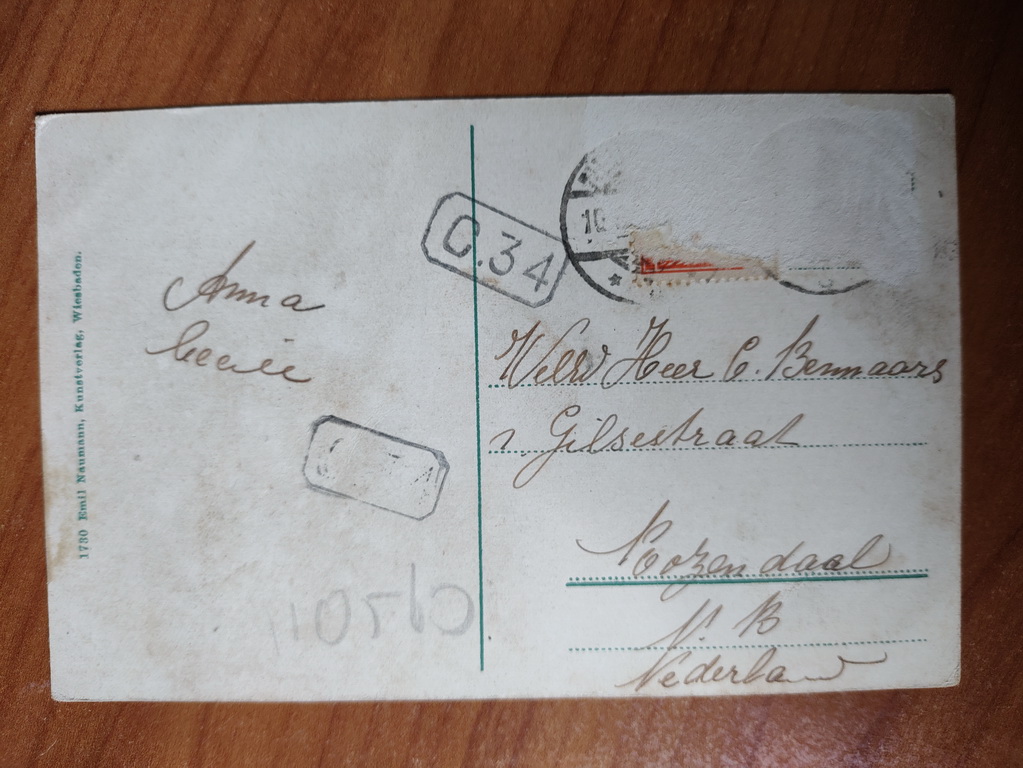 1730 Emil Naumann, Kunstverlag, Wiesbaden.
Anna
C.34
10
Heer C. Bennaars
Gilsestraat
Rozendaal
N. B
Nederland